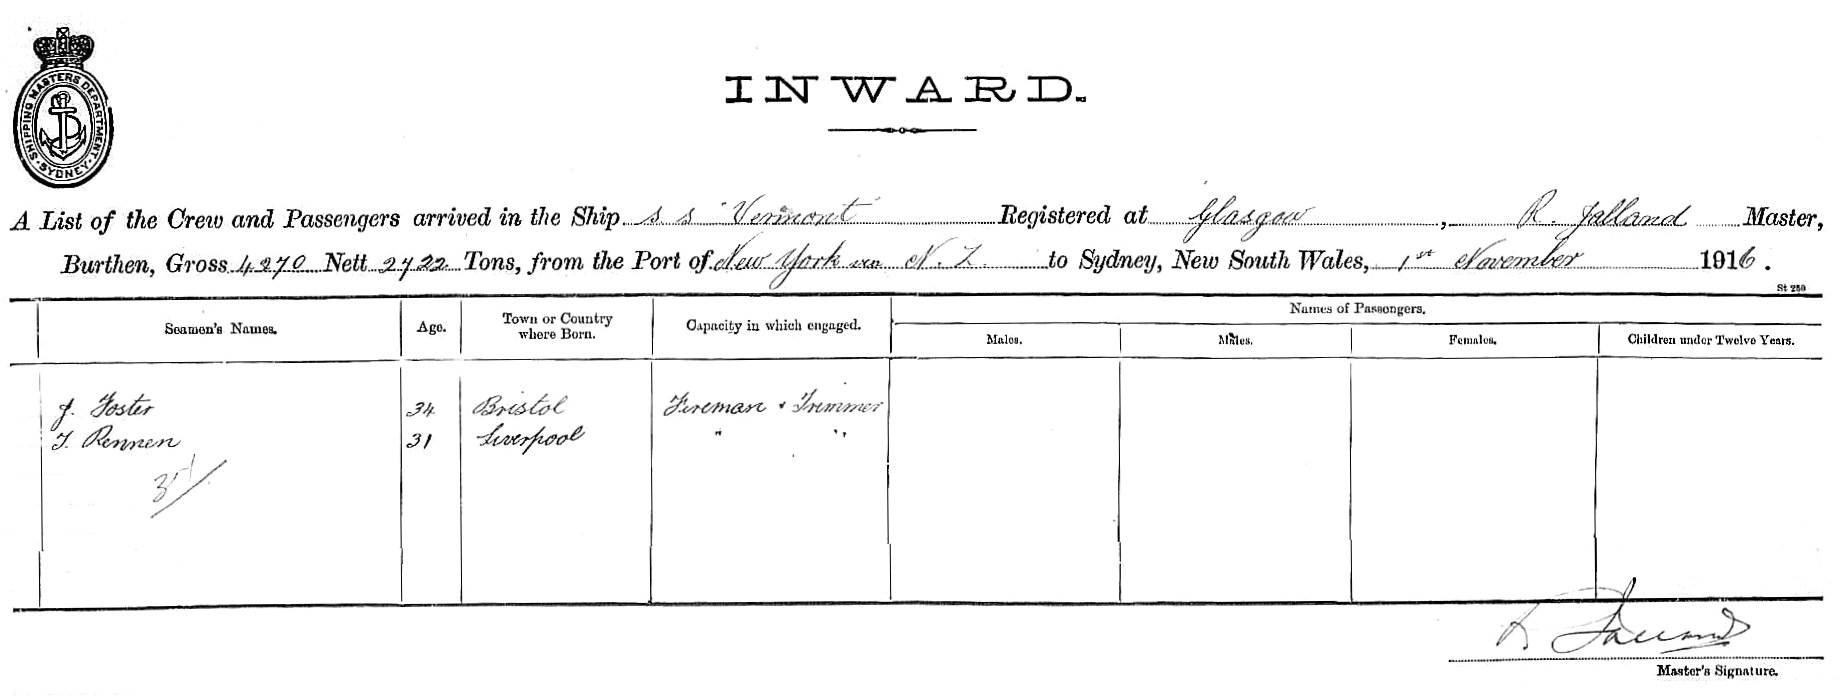 SHIPPING MASTERS DEPARTMENT · SYDNEY ·
INWARD.
A List of the Crew and Passengers arrived in the Ship s s "Vermont" Registered at Glasgow, R. Jalland Master,
Burthen, Gross 4270 Nett 2722 Tons, from the Port of New York via N. Z. to Sydney, New South Wales, 1st November 1916.
St 250
Seamen's Names. Age. Town or Country where Born. Capacity in which engaged. Names of Passengers.
Males. Males. Females. Children under Twelve Years.
J. Foster 34 Bristol Fireman & Trimmer
T. Rennen 31 Liverpool " "
R Jalland
Master's Signature.